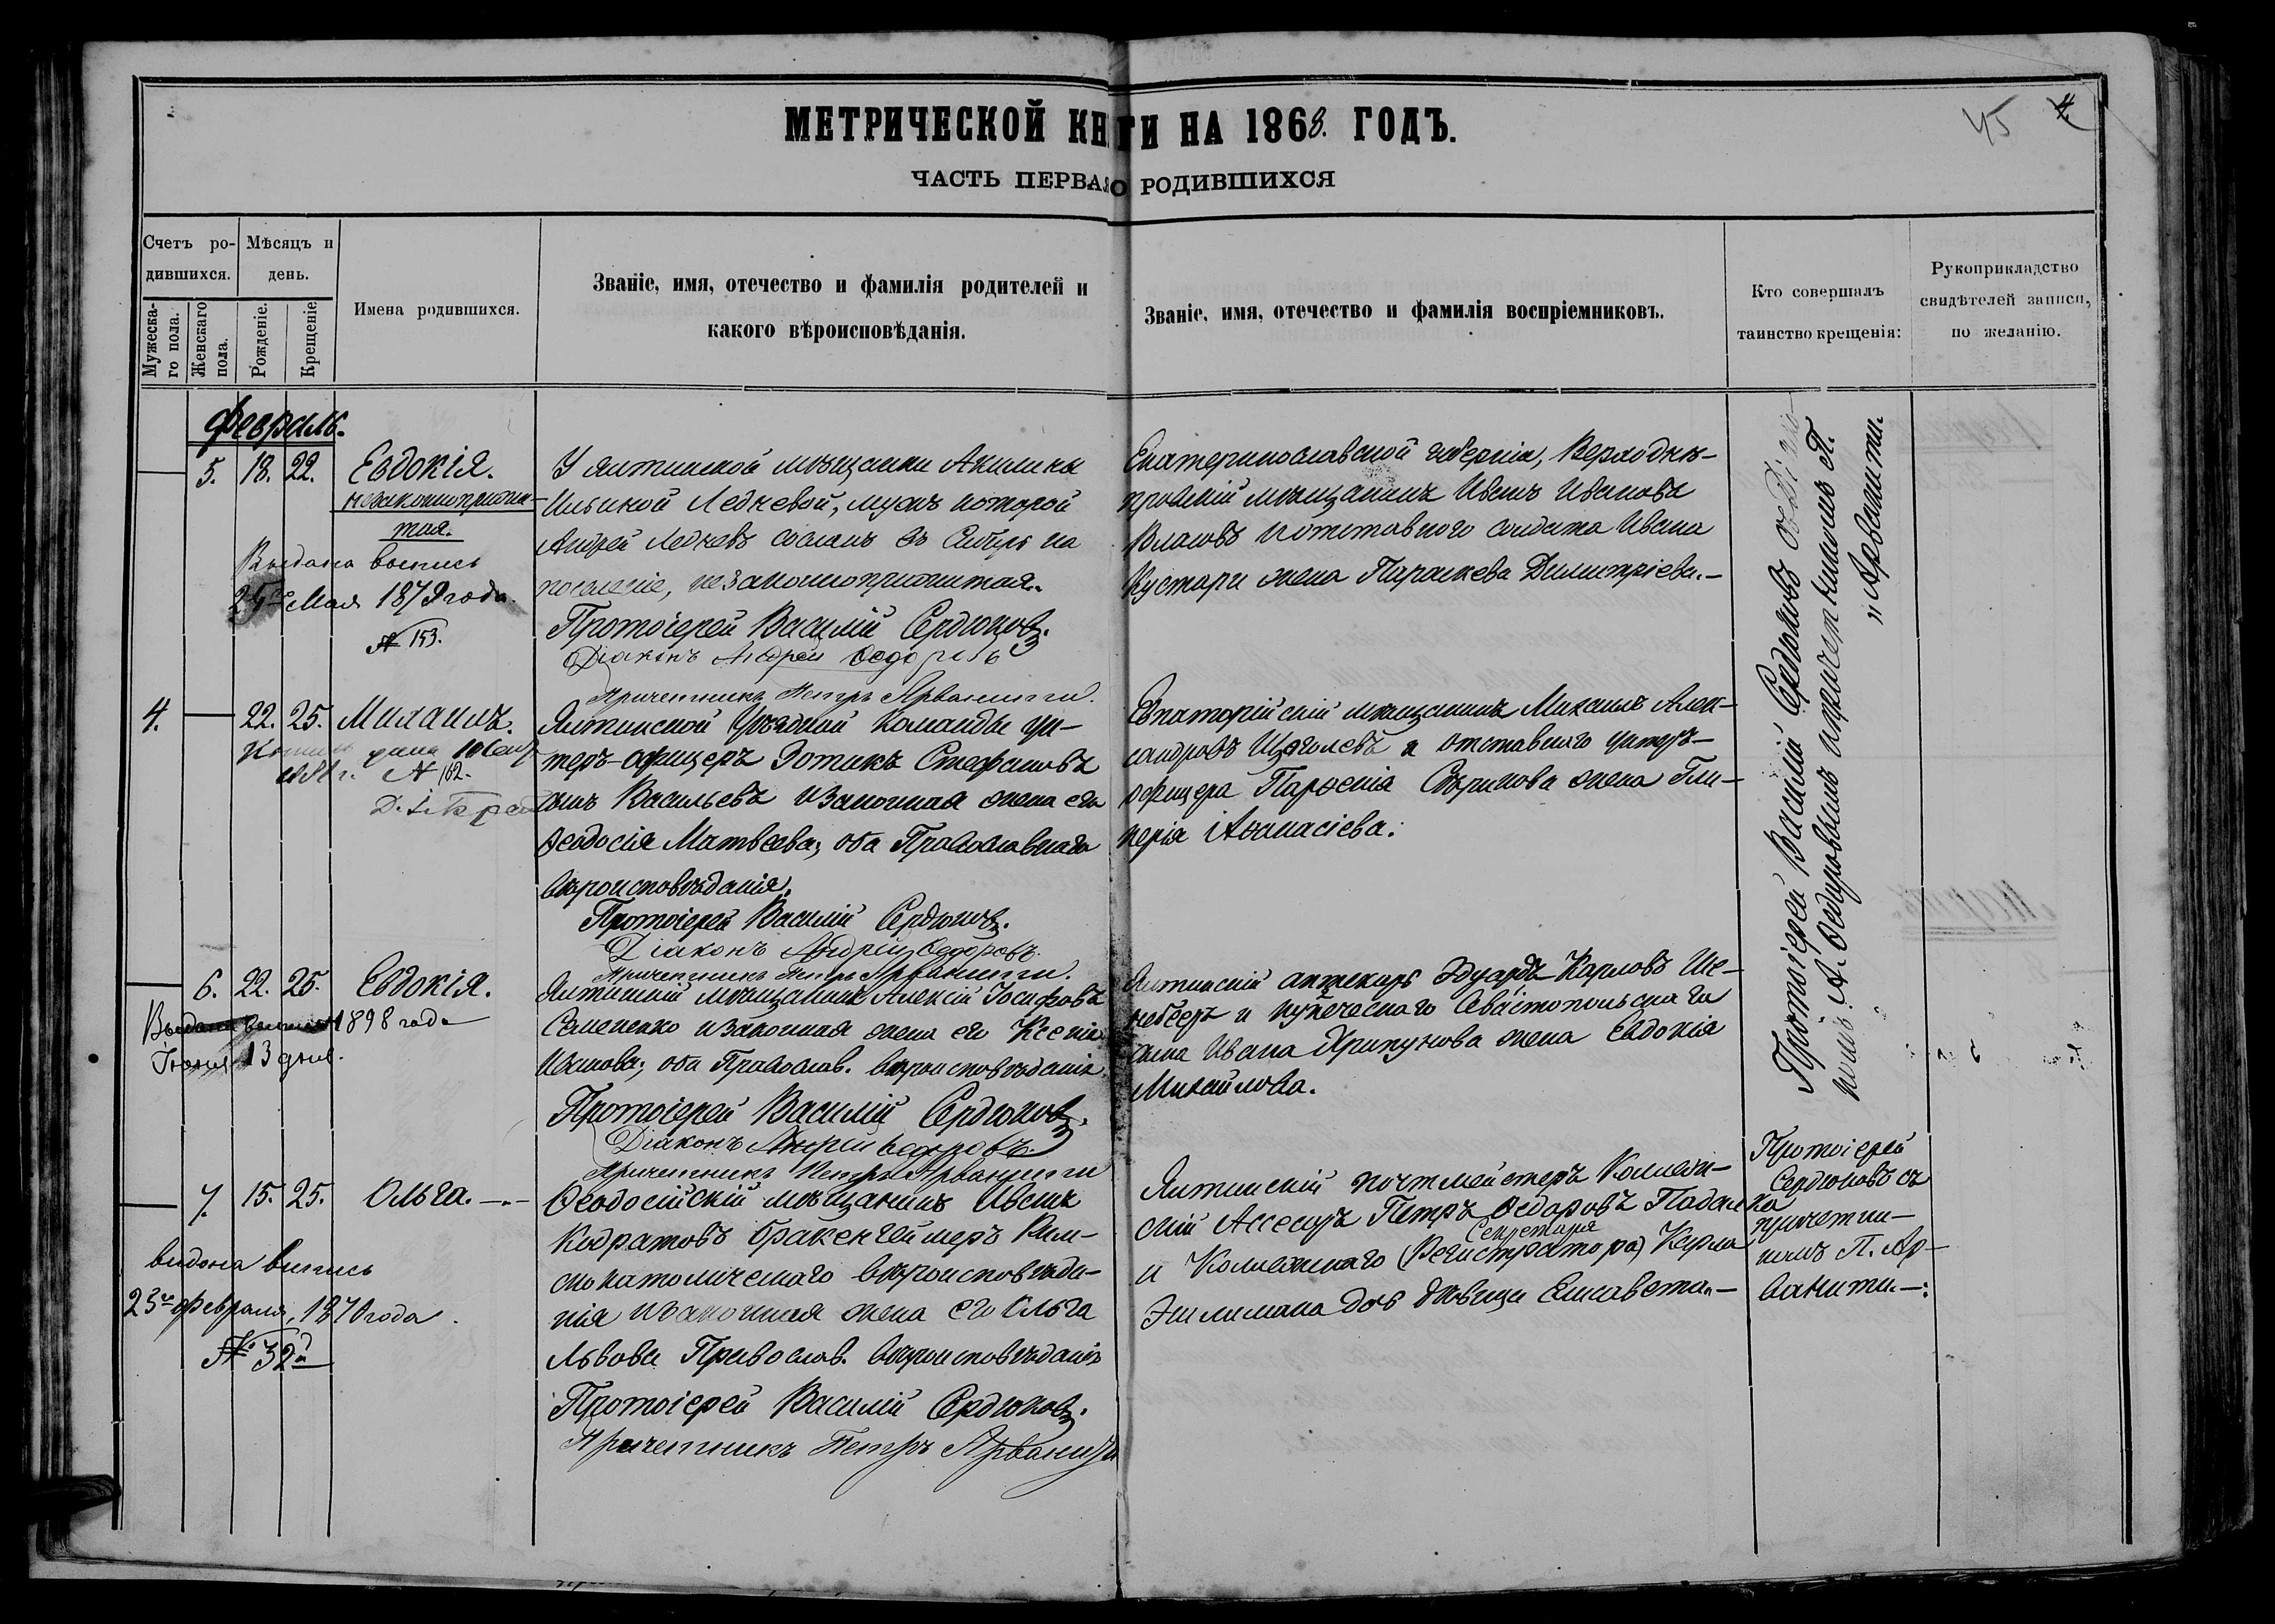 МЕТРИЧЕСКОЙ КНИГИ НА 1868. ГОДЪ.
45
4
ЧАСТЬ ПЕРВАЯ О РОДИВШИХСЯ
Счетъ ро-
дившихся.
Мужеска-
го пола.
Женскаго
пола.
Мѣсяцъ и
день.
Рожденіе.
Крещеніе
Имена родившихся.
Званіе, имя, отечество и фамилія родителей и
какого вѣроисповѣданія.
Званіе, имя, отечество и фамилія воспріемниковъ.
Кто совершалъ
таинство крещенія:
Рукоприкладство
свидѣтелей записи,
по желанію.
Февраль.
5. 18. 22. Евдокія.
незаконноприжи-
тая.
Выдана выпись
25го Мая 1879 года.
№ 153.
У ялтинской мѣщанки Акилины
Ильиной Ледневой, мужъ которой
Андрей Ледневъ сосланъ въ Сибирь на
поселеніе, незаконноприжитая.
Протоіерей Василій Сердюковъ.
Діаконъ Андрей Ѳедоровъ
Причетникъ Петръ Арванитти.
Екатеринославской губерніи, Верходнѣ-
провскій мѣщанинъ Иванъ Ивановъ
Власовъ и отставного солдата Ивана
Кустари жена Параскева Димитріева.—
Протоіерей Василій Сердюковъ съ Діако-
номъ А. Ѳедоровымъ и причетникомъ П.
Арванитти.
4. 22. 25. Михаилъ.
дана
№ 162.
Ялтинской Уѣздной Команды ун-
теръ-офицеръ Зотикъ Стефановъ
сынъ Васильевъ и законная жена его
Ѳеодосія Матвѣева; оба Православнаго
вѣроисповѣданія.
Протоіерей Василій Сердюковъ.
Діаконъ Андрій Ѳедоровъ.
Причетникъ Петръ Арванитти.
Евпаторійскій мѣщанинъ Михаилъ Алек-
сандровъ Щеголевъ и отставного унтеръ-
офицера Парѳенія Сѣрикова жена Гли-
керія Аѳанасіева.
6. 22. 25. Евдокія.
Выдана выпись 1898 года
Іюня 13 дня.
Ялтинскій мѣщанинъ Алексій Іосифовъ
Семененко и законная жена его Ксенія
Иванова; оба Православ. вѣроисповѣданія.
Протоіерей Василій Сердюковъ.
Діаконъ Андрій Ѳедоровъ.
Причетникъ Петръ Арванитти
Ялтинскій аптекарь Эдуардъ Карловъ Ше-
и купеческаго Севастопольскаго
сына Ивана Хрипунова жена Евдокія
Михайлова.
7. 15. 25. Ольга.
видона випись
23го февраля, 1870 года
№ 32й
Ѳеодосійскій мѣщанинъ Иванъ
Кодратовъ Бракенгеймеръ Рим-
скокатолическаго вѣроисповѣда-
нія и законная жена его Ольга
Львова Православ. вѣроисповѣданія
Протоіерей Василій Сердюковъ.
Причетникъ Петръ Арванитти
Ялтинскій почтмейстеръ Коллеж-
скій Ассесоръ Петръ Ѳедоровъ
Секретаря
и Коллежскаго (Регистратора) Карла
дочь дѣвица Елисавета.—
Протоіерей
Сердюковъ съ
причетни-
комъ П. Ар-
ванити.—